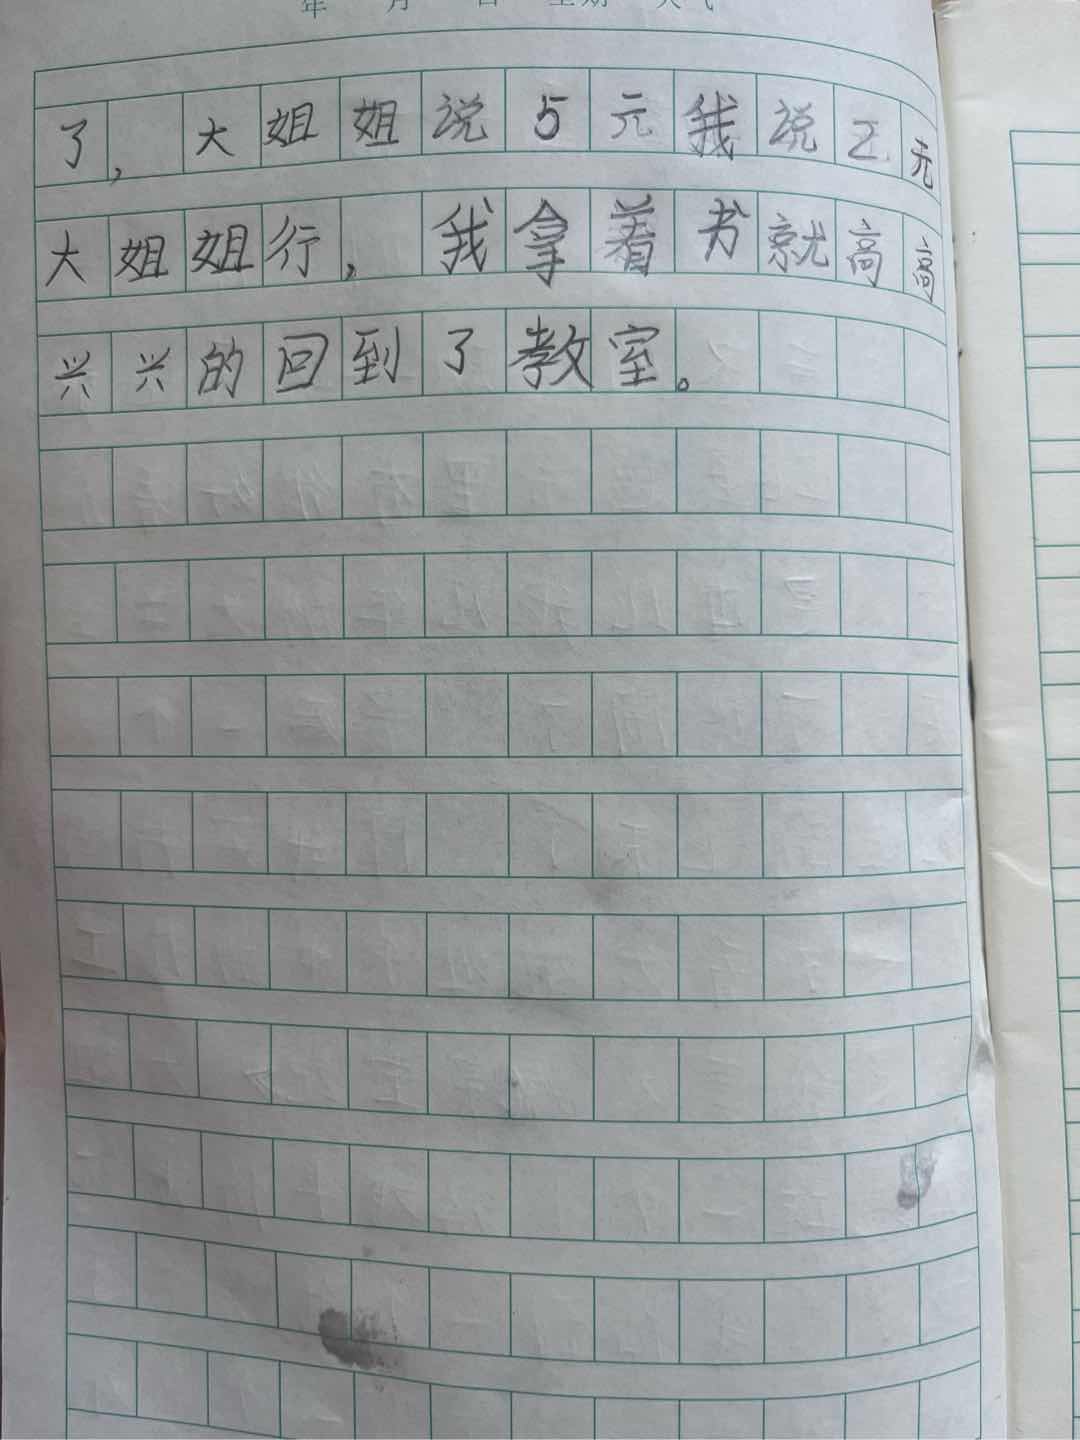 年 月 日 星期 天气
了，大姐姐说5元我说2元
大姐姐行，我拿着书就高高
兴兴的回到了教室。